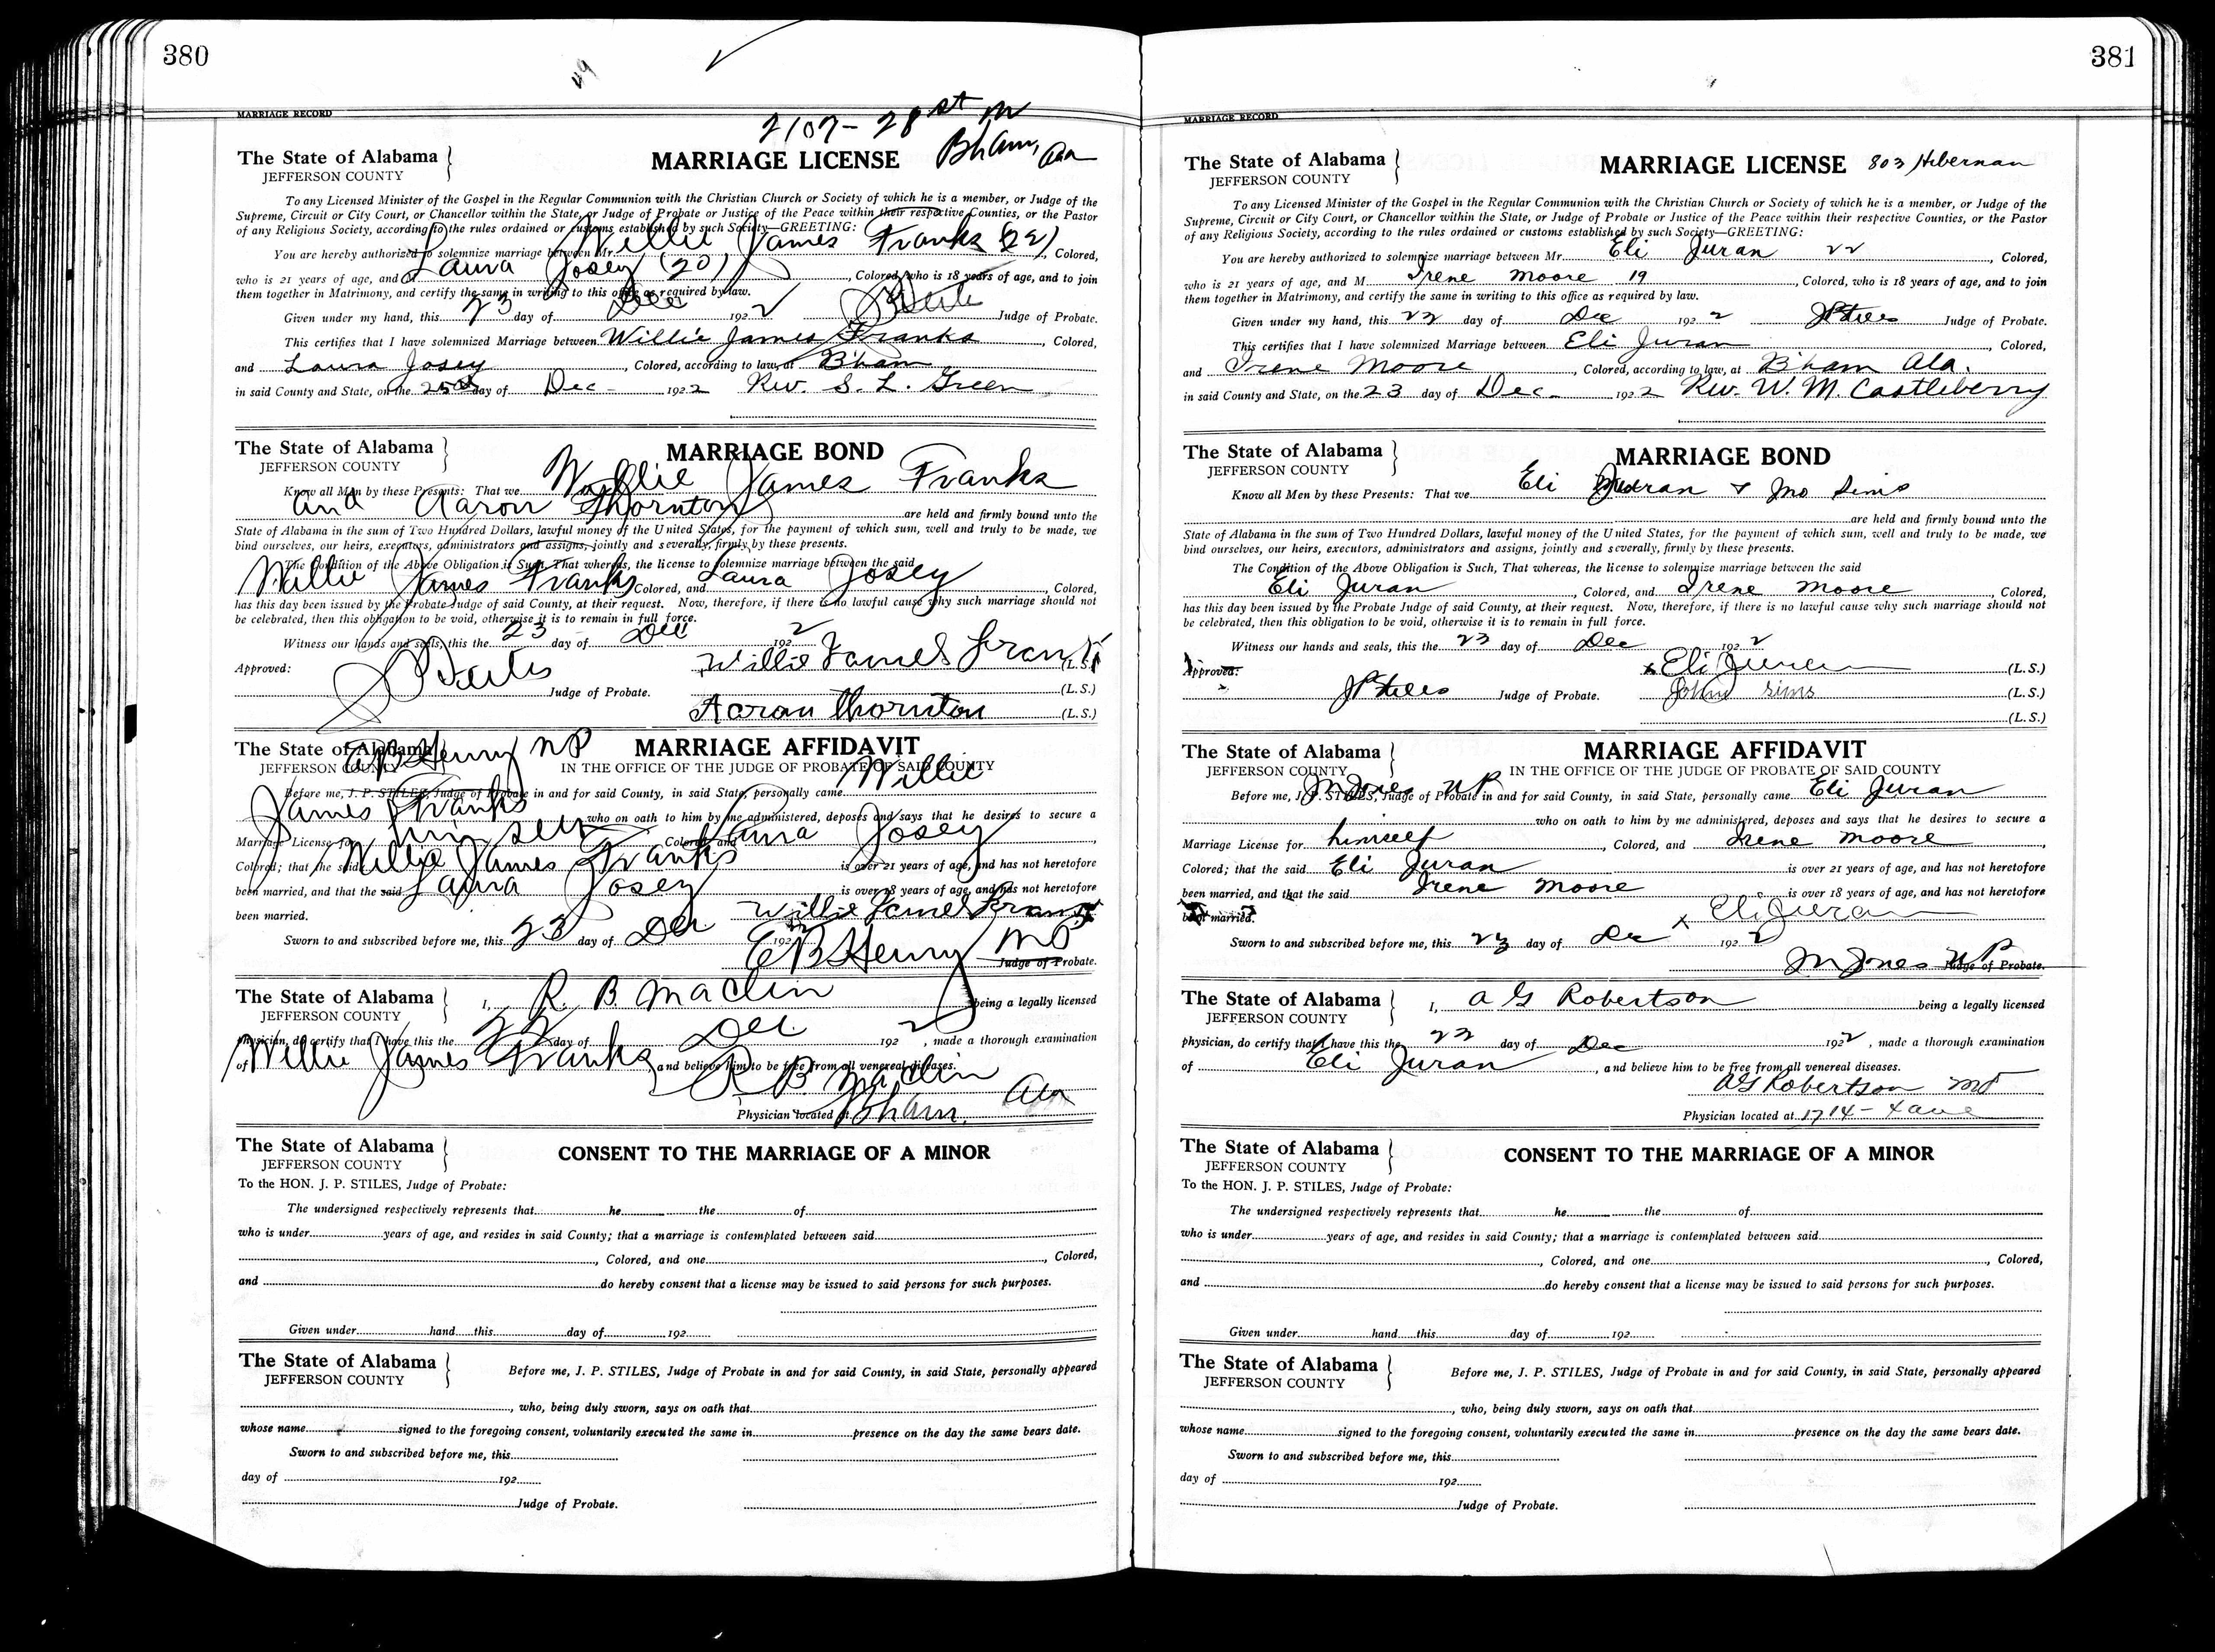 380
MARRIAGE RECORD
2107 - 28 st N
Bham, Ala
The State of Alabama
JEFFERSON COUNTY
MARRIAGE LICENSE
To any Licensed Minister of the Gospel in the Regular Communion with the Christian Church or Society of which he is a member, or Judge of the
Supreme, Circuit or City Court, or Chancellor within the State, or Judge of Probate or Justice of the Peace within their respective Counties, or the Pastor
of any Religious Society, according to the rules ordained or customs established by such Society—GREETING:
You are hereby authorized to solemnize marriage between Mr. Willie James Franks (22), Colored,
who is 21 years of age, and Laura Josey (20), Colored, who is 18 years of age, and to join
them together in Matrimony, and certify the same in writing to this office as required by law.
Given under my hand, this 23 day of Dec 1922 JPStiles Judge of Probate.
This certifies that I have solemnized Marriage between Willie James Franks, Colored,
and Laura Josey, Colored, according to law, at B'ham
in said County and State, on the day of Dec - 1922 Rev. S. L. Green
The State of Alabama
JEFFERSON COUNTY
MARRIAGE BOND
Know all Men by these Presents: That we Willie James Franks
and Aaron Thornton are held and firmly bound unto the
State of Alabama in the sum of Two Hundred Dollars, lawful money of the United States, for the payment of which sum, well and truly to be made, we
bind ourselves, our heirs, executors, administrators and assigns, jointly and severally, firmly by these presents.
The Condition of the Above Obligation is Such, That whereas, the license to solemnize marriage between the said
Willie James Franks Colored, and Laura Josey, Colored,
has this day been issued by the Probate Judge of said County, at their request. Now, therefore, if there is no lawful cause why such marriage should not
be celebrated, then this obligation to be void, otherwise it is to remain in full force.
Witness our hands and seals, this the 23 day of Dec 1922
Approved: Willie James Franks (L.S.)
JPStiles Judge of Probate. (L.S.)
Aaron Thornton (L.S.)
The State of Alabama
JEFFERSON COUNTY
EB Henry NP
MARRIAGE AFFIDAVIT
IN THE OFFICE OF THE JUDGE OF PROBATE OF SAID COUNTY
Before me, J. P. STILES, Judge of Probate in and for said County, in said State, personally came Willie
James Franks who on oath to him by me administered, deposes and says that he desires to secure a
Marriage License for himself Colored, and Laura Josey,
Colored; that the said Willie James Franks is over 21 years of age, and has not heretofore
been married, and that the said Laura Josey is over 18 years of age, and has not heretofore
been married. Willie James Franks
Sworn to and subscribed before me, this 23 day of Dec 192
EB Henry NP Judge of Probate.
The State of Alabama
JEFFERSON COUNTY
I, R. B. Maclin being a legally licensed
physician, do certify that I have this the 22 day of Dec. 1922, made a thorough examination
of Willie James Franks and believe him to be free from all venereal diseases.
R B. Maclin
Physician located at Bham, Ala
The State of Alabama
JEFFERSON COUNTY
CONSENT TO THE MARRIAGE OF A MINOR
To the HON. J. P. STILES, Judge of Probate:
The undersigned respectively represents that he the of
who is under years of age, and resides in said County; that a marriage is contemplated between said
, Colored, and one, Colored,
and do hereby consent that a license may be issued to said persons for such purposes.
Given under hand this day of 192
The State of Alabama
JEFFERSON COUNTY
Before me, J. P. STILES, Judge of Probate in and for said County, in said State, personally appeared
, who, being duly sworn, says on oath that
whose name signed to the foregoing consent, voluntarily executed the same in presence on the day the same bears date.
Sworn to and subscribed before me, this
day of 192
Judge of Probate.
381
MARRIAGE RECORD
The State of Alabama
JEFFERSON COUNTY
MARRIAGE LICENSE 803 Hibernan
To any Licensed Minister of the Gospel in the Regular Communion with the Christian Church or Society of which he is a member, or Judge of the
Supreme, Circuit or City Court, or Chancellor within the State, or Judge of Probate or Justice of the Peace within their respective Counties, or the Pastor
of any Religious Society, according to the rules ordained or customs established by such Society—GREETING:
You are hereby authorized to solemnize marriage between Mr. Eli Juran 22, Colored,
who is 21 years of age, and M Irene Moore 19, Colored, who is 18 years of age, and to join
them together in Matrimony, and certify the same in writing to this office as required by law.
Given under my hand, this 22 day of Dec 1922 JPStiles Judge of Probate.
This certifies that I have solemnized Marriage between Eli Juran, Colored,
and Irene Moore, Colored, according to law, at B'ham Ala.
in said County and State, on the 23 day of Dec. 1922 Rev. W. M. Castleberry
The State of Alabama
JEFFERSON COUNTY
MARRIAGE BOND
Know all Men by these Presents: That we Eli Juran & Jno Sims
are held and firmly bound unto the
State of Alabama in the sum of Two Hundred Dollars, lawful money of the United States, for the payment of which sum, well and truly to be made, we
bind ourselves, our heirs, executors, administrators and assigns, jointly and severally, firmly by these presents.
The Condition of the Above Obligation is Such, That whereas, the license to solemnize marriage between the said
Eli Juran, Colored, and Irene Moore, Colored,
has this day been issued by the Probate Judge of said County, at their request. Now, therefore, if there is no lawful cause why such marriage should not
be celebrated, then this obligation to be void, otherwise it is to remain in full force.
Witness our hands and seals, this the 23 day of Dec 1922
Approved: x Eli Juran (L.S.)
JPStiles Judge of Probate. John Sims (L.S.)
(L.S.)
The State of Alabama
JEFFERSON COUNTY
MARRIAGE AFFIDAVIT
IN THE OFFICE OF THE JUDGE OF PROBATE OF SAID COUNTY
M Jones NP
Before me, J. P. STILES, Judge of Probate in and for said County, in said State, personally came Eli Juran
who on oath to him by me administered, deposes and says that he desires to secure a
Marriage License for himself, Colored, and Irene Moore,
Colored; that the said Eli Juran is over 21 years of age, and has not heretofore
been married, and that the said Irene Moore is over 18 years of age, and has not heretofore
been married. x Eli Juran
Sworn to and subscribed before me, this 23 day of Dec 1922
M Jones NP Judge of Probate.
The State of Alabama
JEFFERSON COUNTY
I, A G Robertson being a legally licensed
physician, do certify that I have this the 22 day of Dec 1922, made a thorough examination
of Eli Juran, and believe him to be free from all venereal diseases.
AG Robertson MD
Physician located at 1714 - 4 ave
The State of Alabama
JEFFERSON COUNTY
CONSENT TO THE MARRIAGE OF A MINOR
To the HON. J. P. STILES, Judge of Probate:
The undersigned respectively represents that he the of
who is under years of age, and resides in said County; that a marriage is contemplated between said
, Colored, and one, Colored,
and do hereby consent that a license may be issued to said persons for such purposes.
Given under hand this day of 192
The State of Alabama
JEFFERSON COUNTY
Before me, J. P. STILES, Judge of Probate in and for said County, in said State, personally appeared
, who, being duly sworn, says on oath that
whose name signed to the foregoing consent, voluntarily executed the same in presence on the day the same bears date.
Sworn to and subscribed before me, this
day of 192
Judge of Probate.